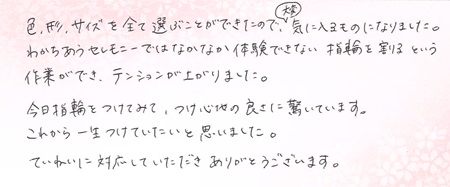 色、形、サイズを全て選ぶことができたので、大変気に入るものになりました。
わかちあうセレモニーではなかなか体験できない 指輪を割るという
作業ができ、テンションが上がりました。
今日指輪をつけてみて、つけ心地の良さに驚いています。
これから一生つけていたいと思いました。
ていねいに対応していただき ありがとうございます。